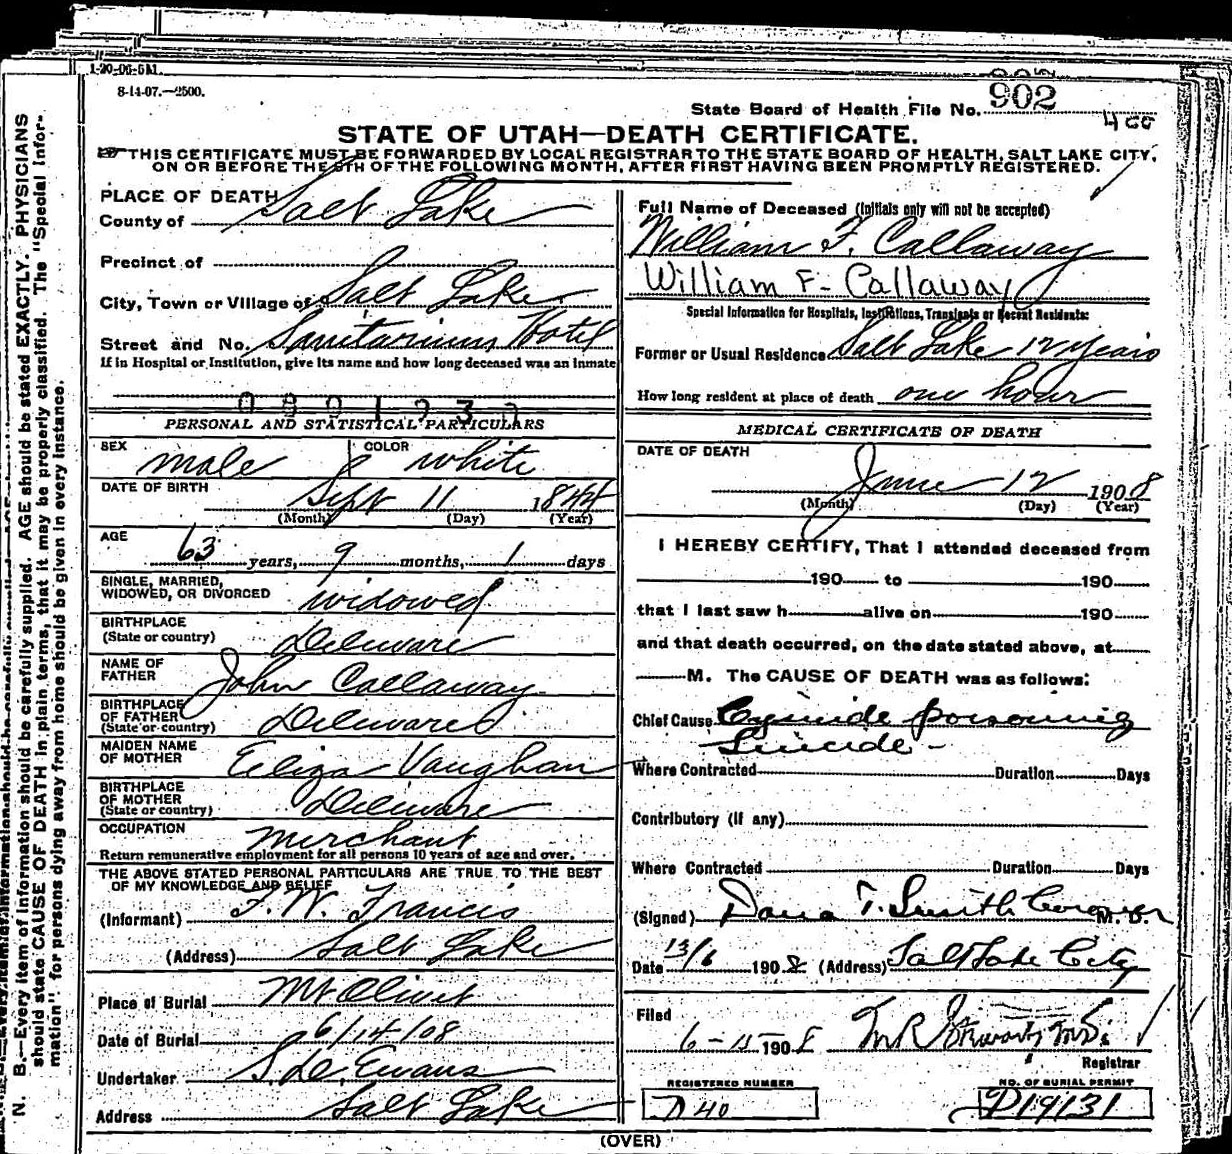 1-20-06-5M.
8-14-07.—2500.
State Board of Health File No. 902
400
STATE OF UTAH—DEATH CERTIFICATE.
THIS CERTIFICATE MUST BE FORWARDED BY LOCAL REGISTRAR TO THE STATE BOARD OF HEALTH, SALT LAKE CITY,
ON OR BEFORE THE 5TH OF THE FOLLOWING MONTH, AFTER FIRST HAVING BEEN PROMPTLY REGISTERED.
PLACE OF DEATH
County of Salt Lake
Precinct of
City, Town or Village of Salt Lake
Street and No. Sanitarium Hotel
If in Hospital or Institution, give its name and how long deceased was an inmate
PERSONAL AND STATISTICAL PARTICULARS
SEX male COLOR white
DATE OF BIRTH Sept 11 1844
(Month) (Day) (Year)
AGE
63 years, 9 months, 1 days
SINGLE, MARRIED,
WIDOWED, OR DIVORCED widowed
BIRTHPLACE
(State or country) Deleware
NAME OF
FATHER John Callaway
BIRTHPLACE
OF FATHER
(State or country) Deleware
MAIDEN NAME
OF MOTHER Eliza Vaughan
BIRTHPLACE
OF MOTHER
(State or country) Deleware
OCCUPATION merchant
Return remunerative employment for all persons 10 years of age and over.
THE ABOVE STATED PERSONAL PARTICULARS ARE TRUE TO THE BEST
OF MY KNOWLEDGE AND BELIEF
(Informant) F. W. Francis
(Address) Salt Lake
Place of Burial Mt Olivet
Date of Burial 6/14/08
Undertaker S. D. Evans
Address Salt Lake
Full Name of Deceased (Initials only will not be accepted)
William F. Callaway
William F- Callaway
Special Information for Hospitals, Institutions, Transients or Recent Residents:
Former or Usual Residence Salt Lake 12 years
How long resident at place of death one hour
MEDICAL CERTIFICATE OF DEATH
DATE OF DEATH
June 12 1908
(Month) (Day) (Year)
I HEREBY CERTIFY, That I attended deceased from
190 to 190
that I last saw h alive on 190
and that death occurred, on the date stated above, at
M. The CAUSE OF DEATH was as follows:
Chief Cause Cyanide poisoning
Suicide-
Where Contracted Duration Days
Contributory (if any)
Where Contracted Duration Days
(Signed) Dana T. Smith Coroner M. D.
Date 13/6 1908 (Address) Salt Lake City
Filed
6- 1908
Registrar
REGISTERED NUMBER
D 40
NO. OF BURIAL PERMIT
D19131
(OVER)
N. B.—Every item of information should be carefully supplied. AGE should be stated EXACTLY. PHYSICIANS
should state CAUSE OF DEATH in plain terms, that it may be properly classified. The "Special Infor-
mation" for persons dying away from home should be given in every instance.